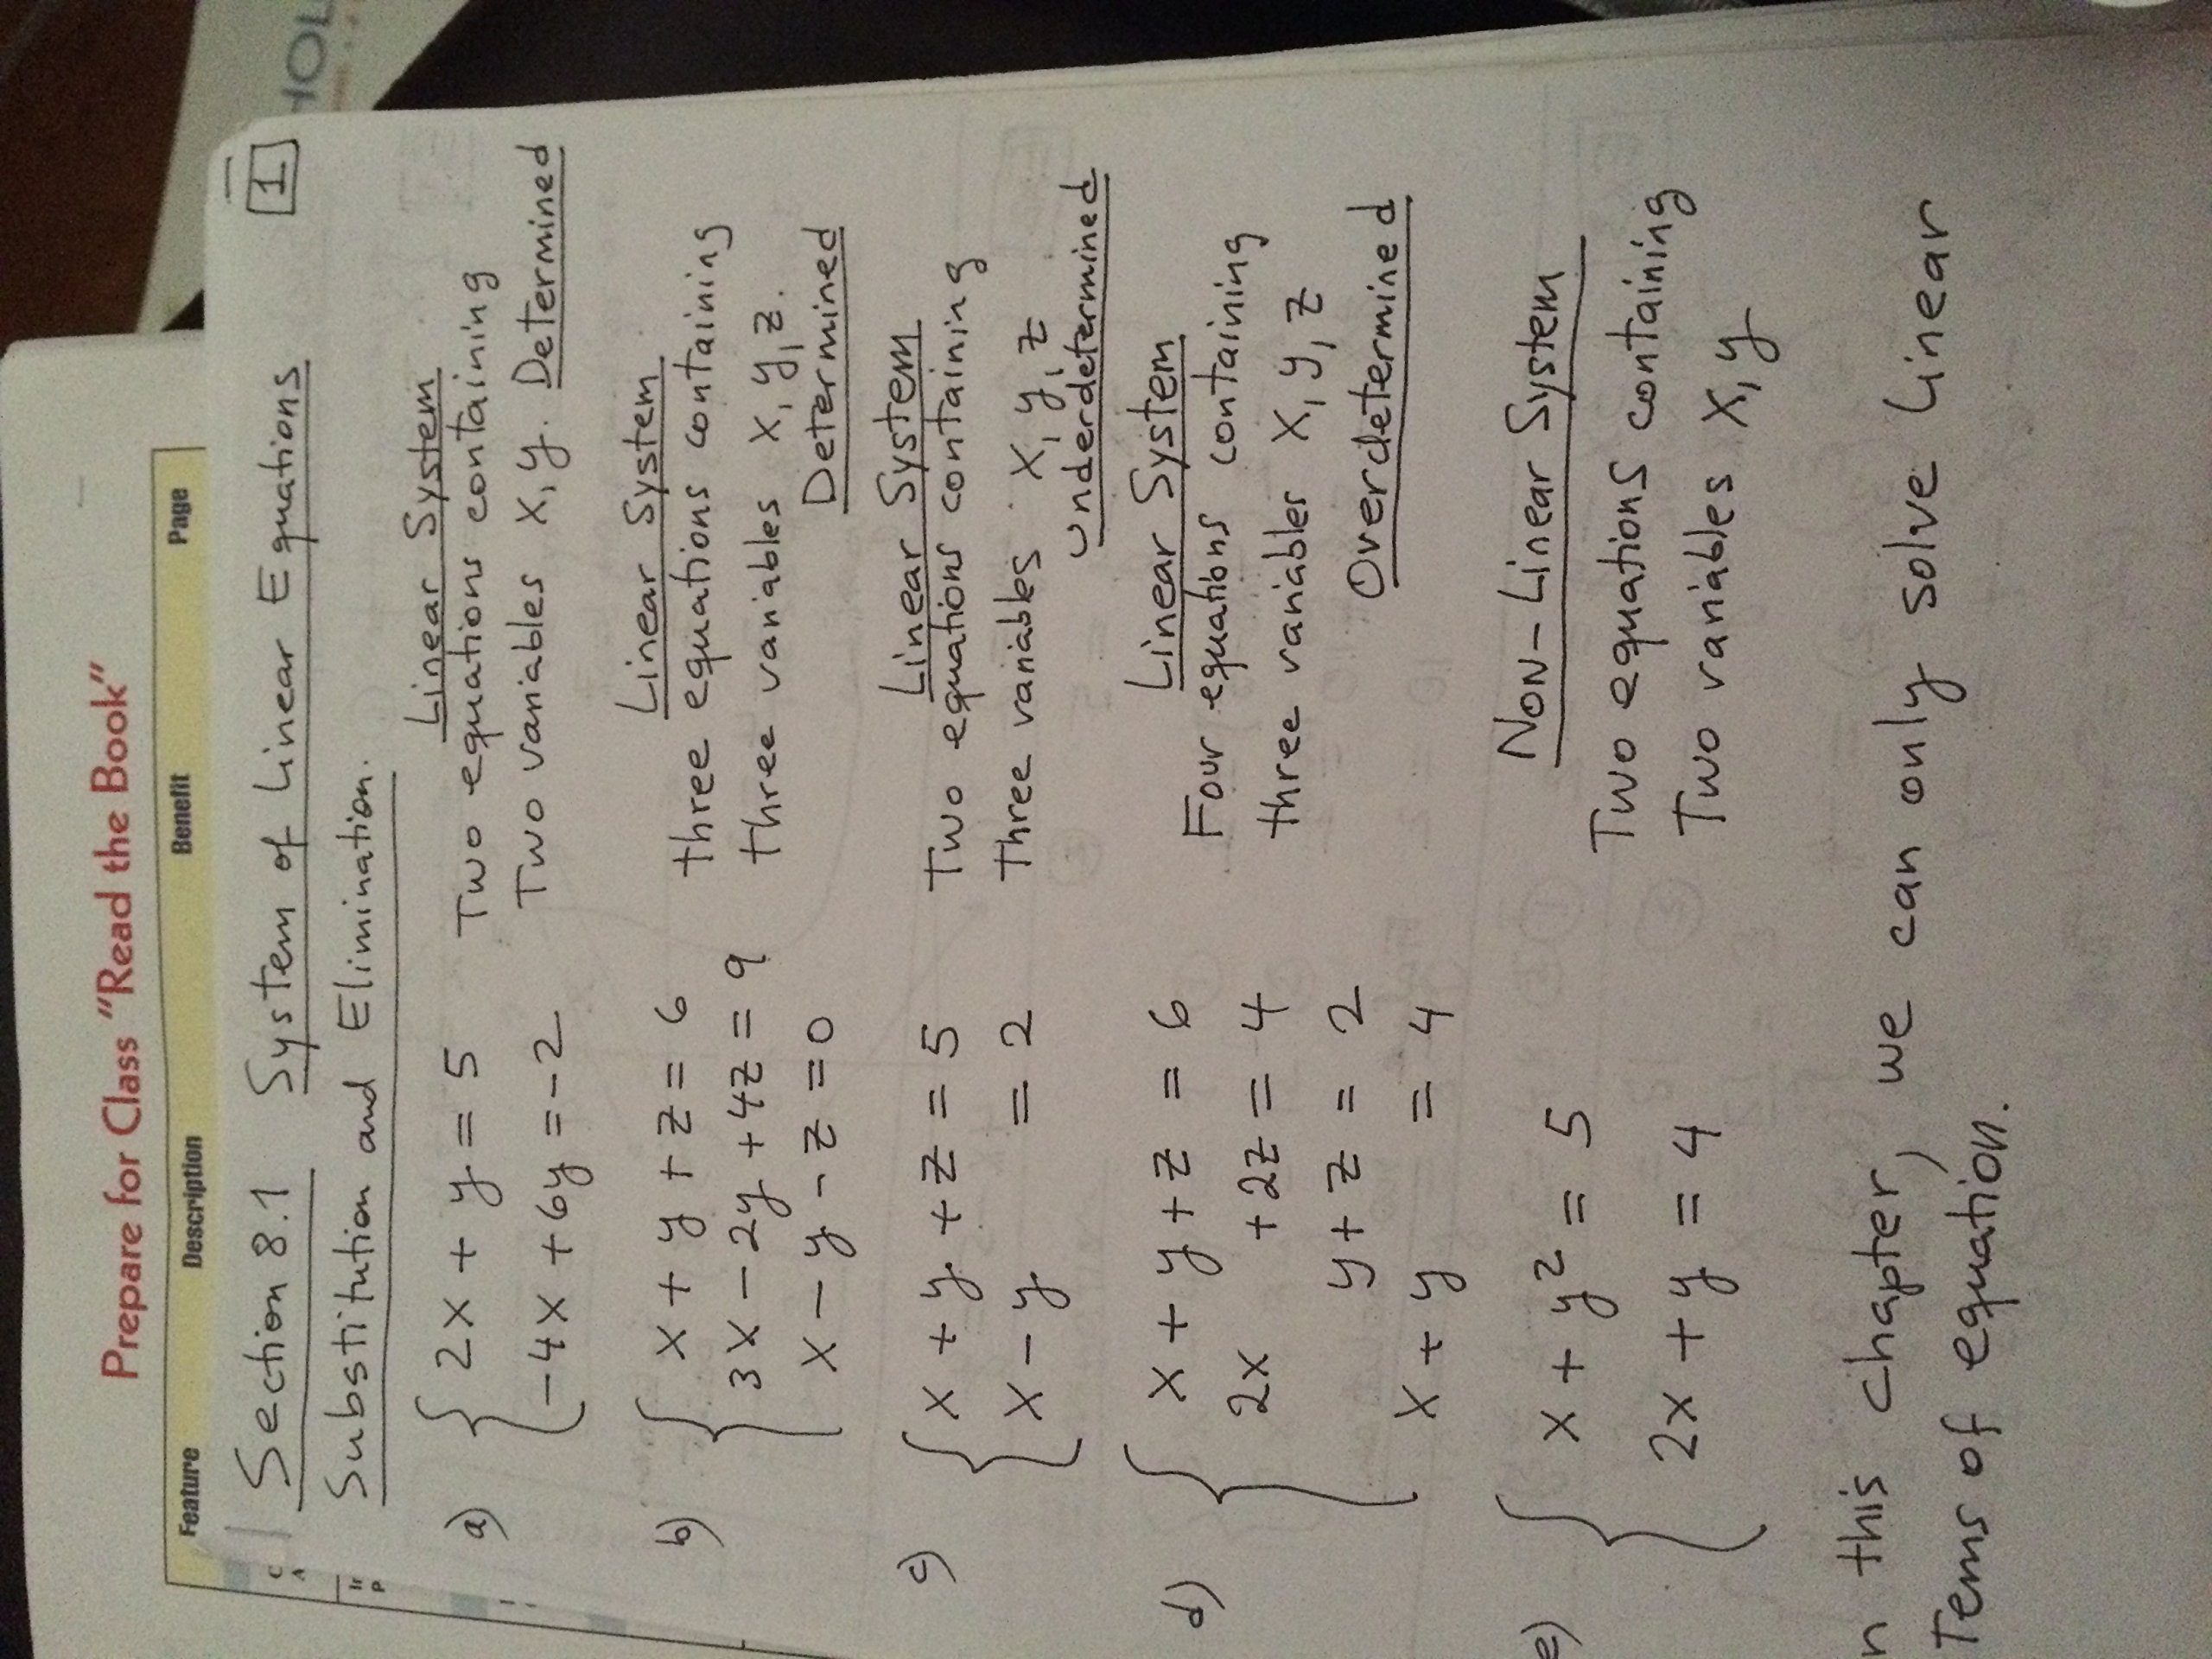 HOL
Prepare for Class "Read the Book"
Feature Description Benefit Page
1
Section 8.1 System of Linear Equations
Substitution and Elimination.
a) { 2x + y = 5
-4x + 6y = -2
Linear System
Two equations containing
Two variables x, y. Determined
b) { x + y + z = 6
3x - 2y + 4z = 9
x - y - z = 0
Linear System
three equations containing
three variables x, y, z.
Determined
c) { x + y + z = 5
x - y = 2
Linear System
Two equations containing
Three variables x, y, z
Underdetermined
d) { x + y + z = 6
2x + 2z = 4
y + z = 2
x + y = 4
Linear System
Four equations containing
three variables x, y, z
Overdetermined
e) { x + y² = 5
2x + y = 4
Non-Linear System
Two equations containing
Two variables x, y
n this chapter, we can only solve Linear
Tems of equation.